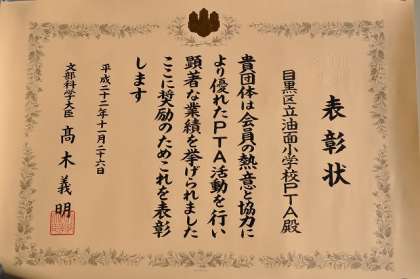 表彰状
目黒区立油面小学校PTA殿
貴団体は会員の熱意と協力に
より優れたPTA活動を行い
顕著な業績を挙げられました
ここに奨励のためこれを表彰
します
平成二十二年十一月二十六日
文部科学大臣 髙木義明